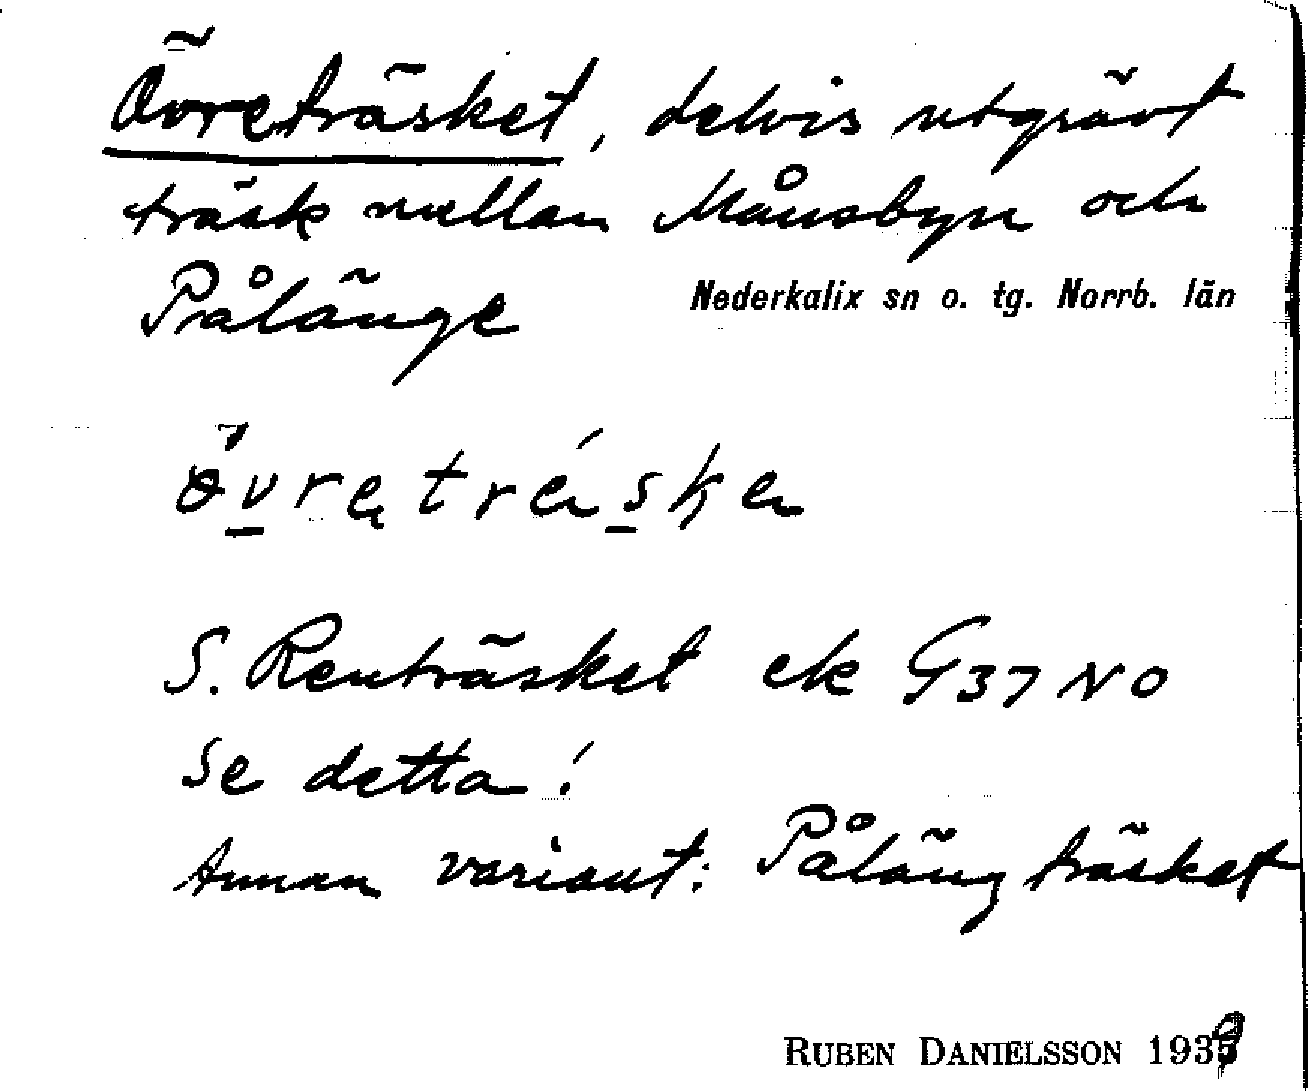 Övreträsket, delvis utgrävt
träsk mellan Månsbyn och
Pålänge
Nederkalix sn o. tg. Norrb. län
övretréske
S. Renträsket ek G37 NO
Se detta!
Annan variant: Pålängträsket
RUBEN DANIELSSON 1939